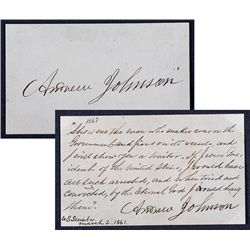 Andrew Johnson
1861
"Show me the man who makes war on the
Government, and fires on its vessels, and
I will show you a traitor. If I were Pres-
ident of the United States, I would have
all such arrested, and when tried and
convicted, by the Eternal God I would hang
them."
Andrew Johnson
US Senate,
March 2. 1861.